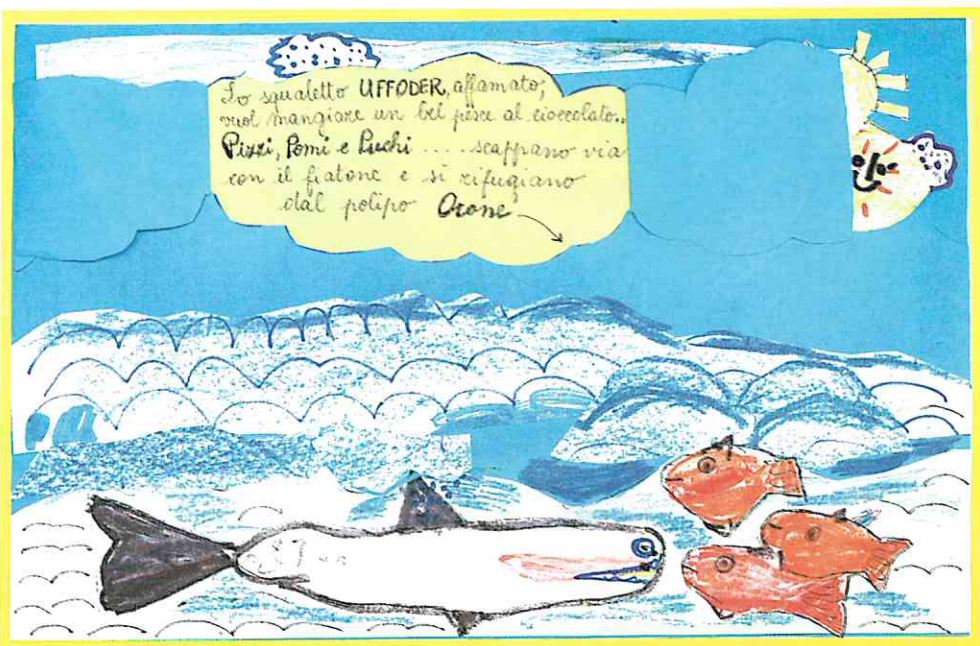 Lo squaletto UFFODER, affamato,
vuol mangiare un bel pesce al cioccolato..
Pizzi, Pomi e Puchi .... scappano via
con il fiatone e si rifugiano
dal polipo Orone